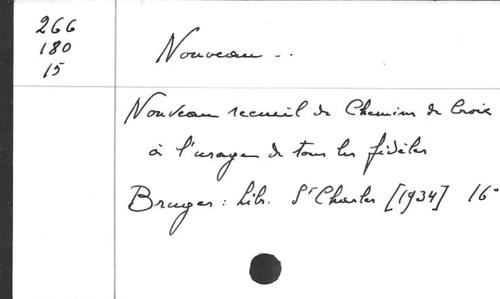 266
180
15
Nouveau ..
Nouveau recueil de Chemins de Croix
à l'usage de tous les fidèles
Bruges : Lib. St Charles [1934] 16°